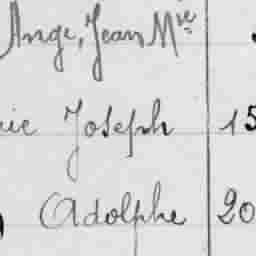 Ange, Jean Mie
Joseph 15
Adolphe 20